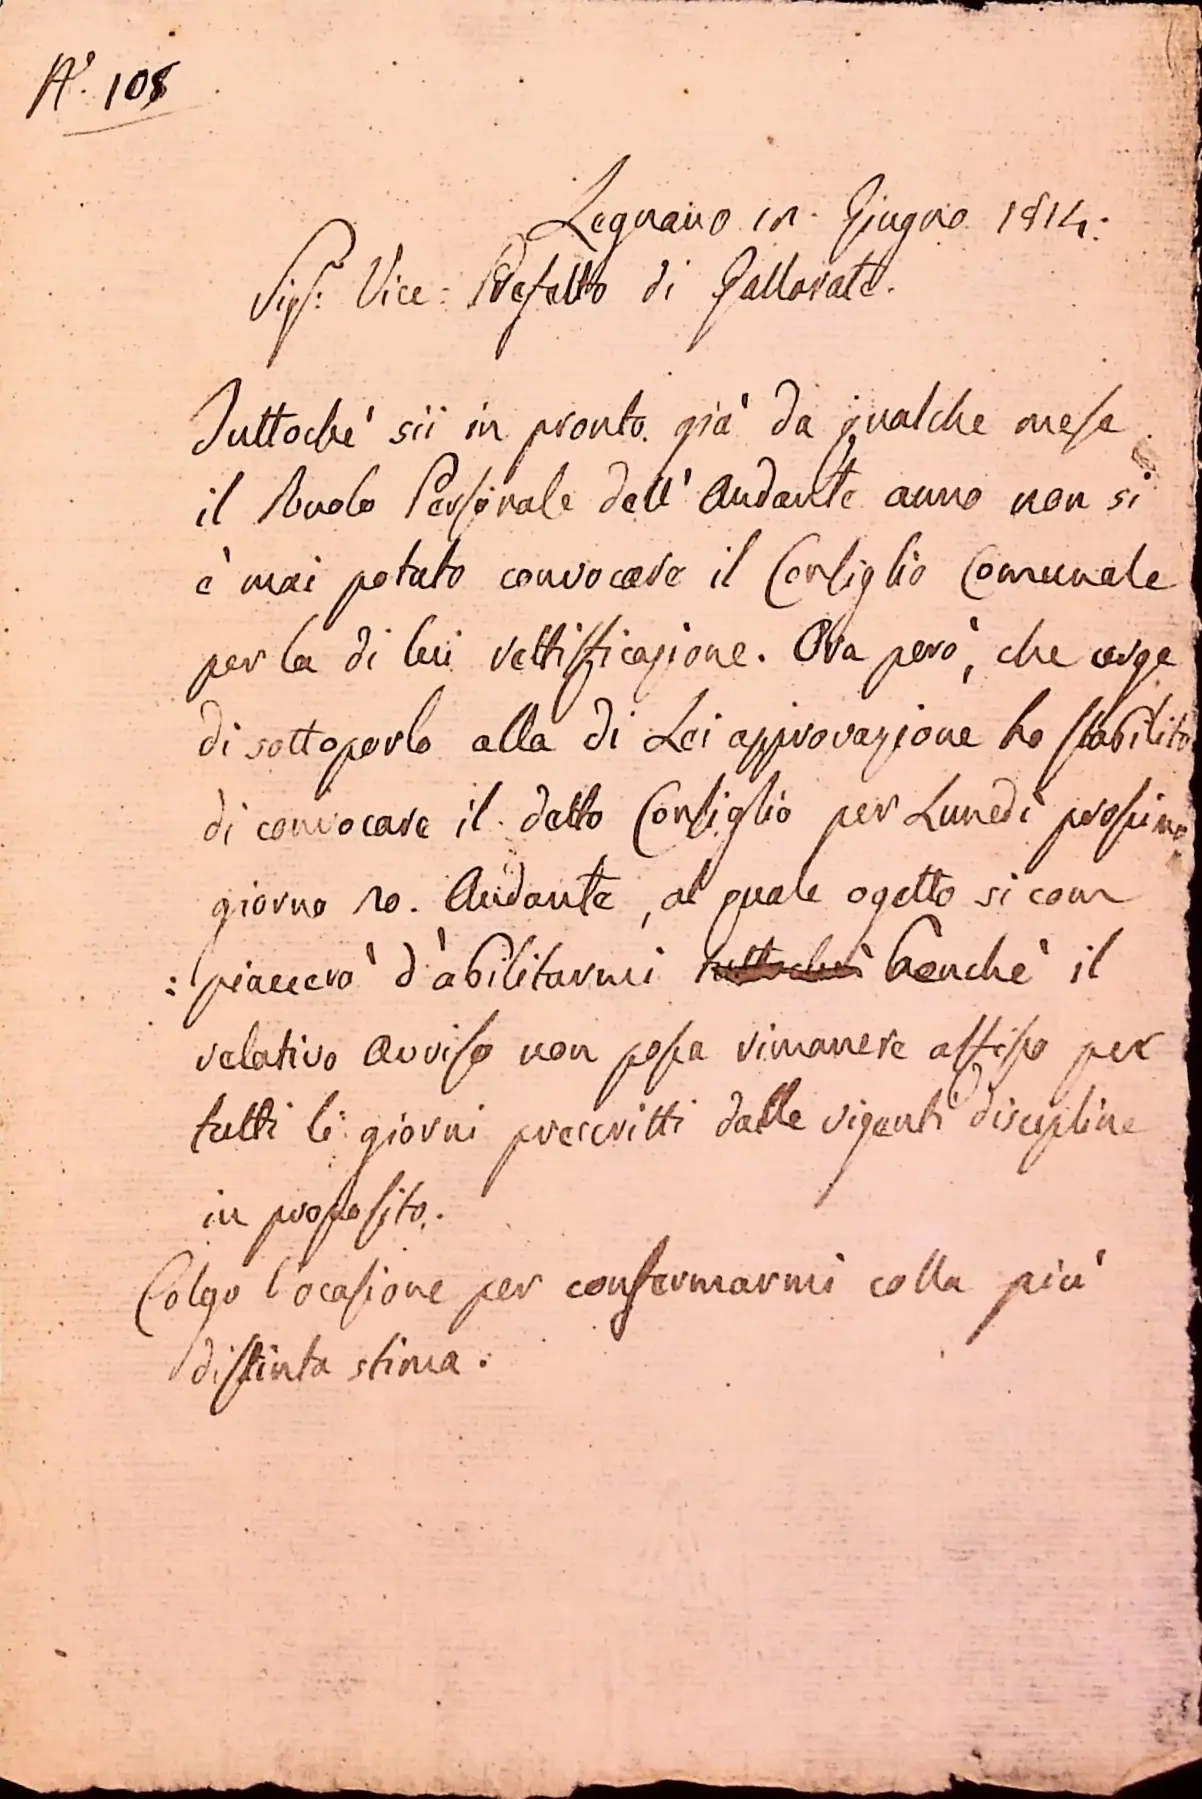 N.° 108
Legnano in Giugno 1814:
Sig.r Vice-Prefetto di Gallarate.
Tuttochè sii in pronto già da qualche mese
il Ruolo Personale dell'Andante anno non si
è mai potuto convocare il Consiglio Comunale
per la di lui rettifficazione. Ora però, che urge
di sottoporlo alla di Lei approvazione ho stabilito
di convocare il detto Consiglio per Lunedì prossimo
giorno 20. Andante, al quale ogetto si com
:piacerà d'abilitarmi tuttochè benchè il
relativo avviso non possa rimanere affisso per
tutti li giorni prescritti dalle vigenti discipline
in proposito.
Colgo l'ocasione per confermarmi colla più
distinta stima.